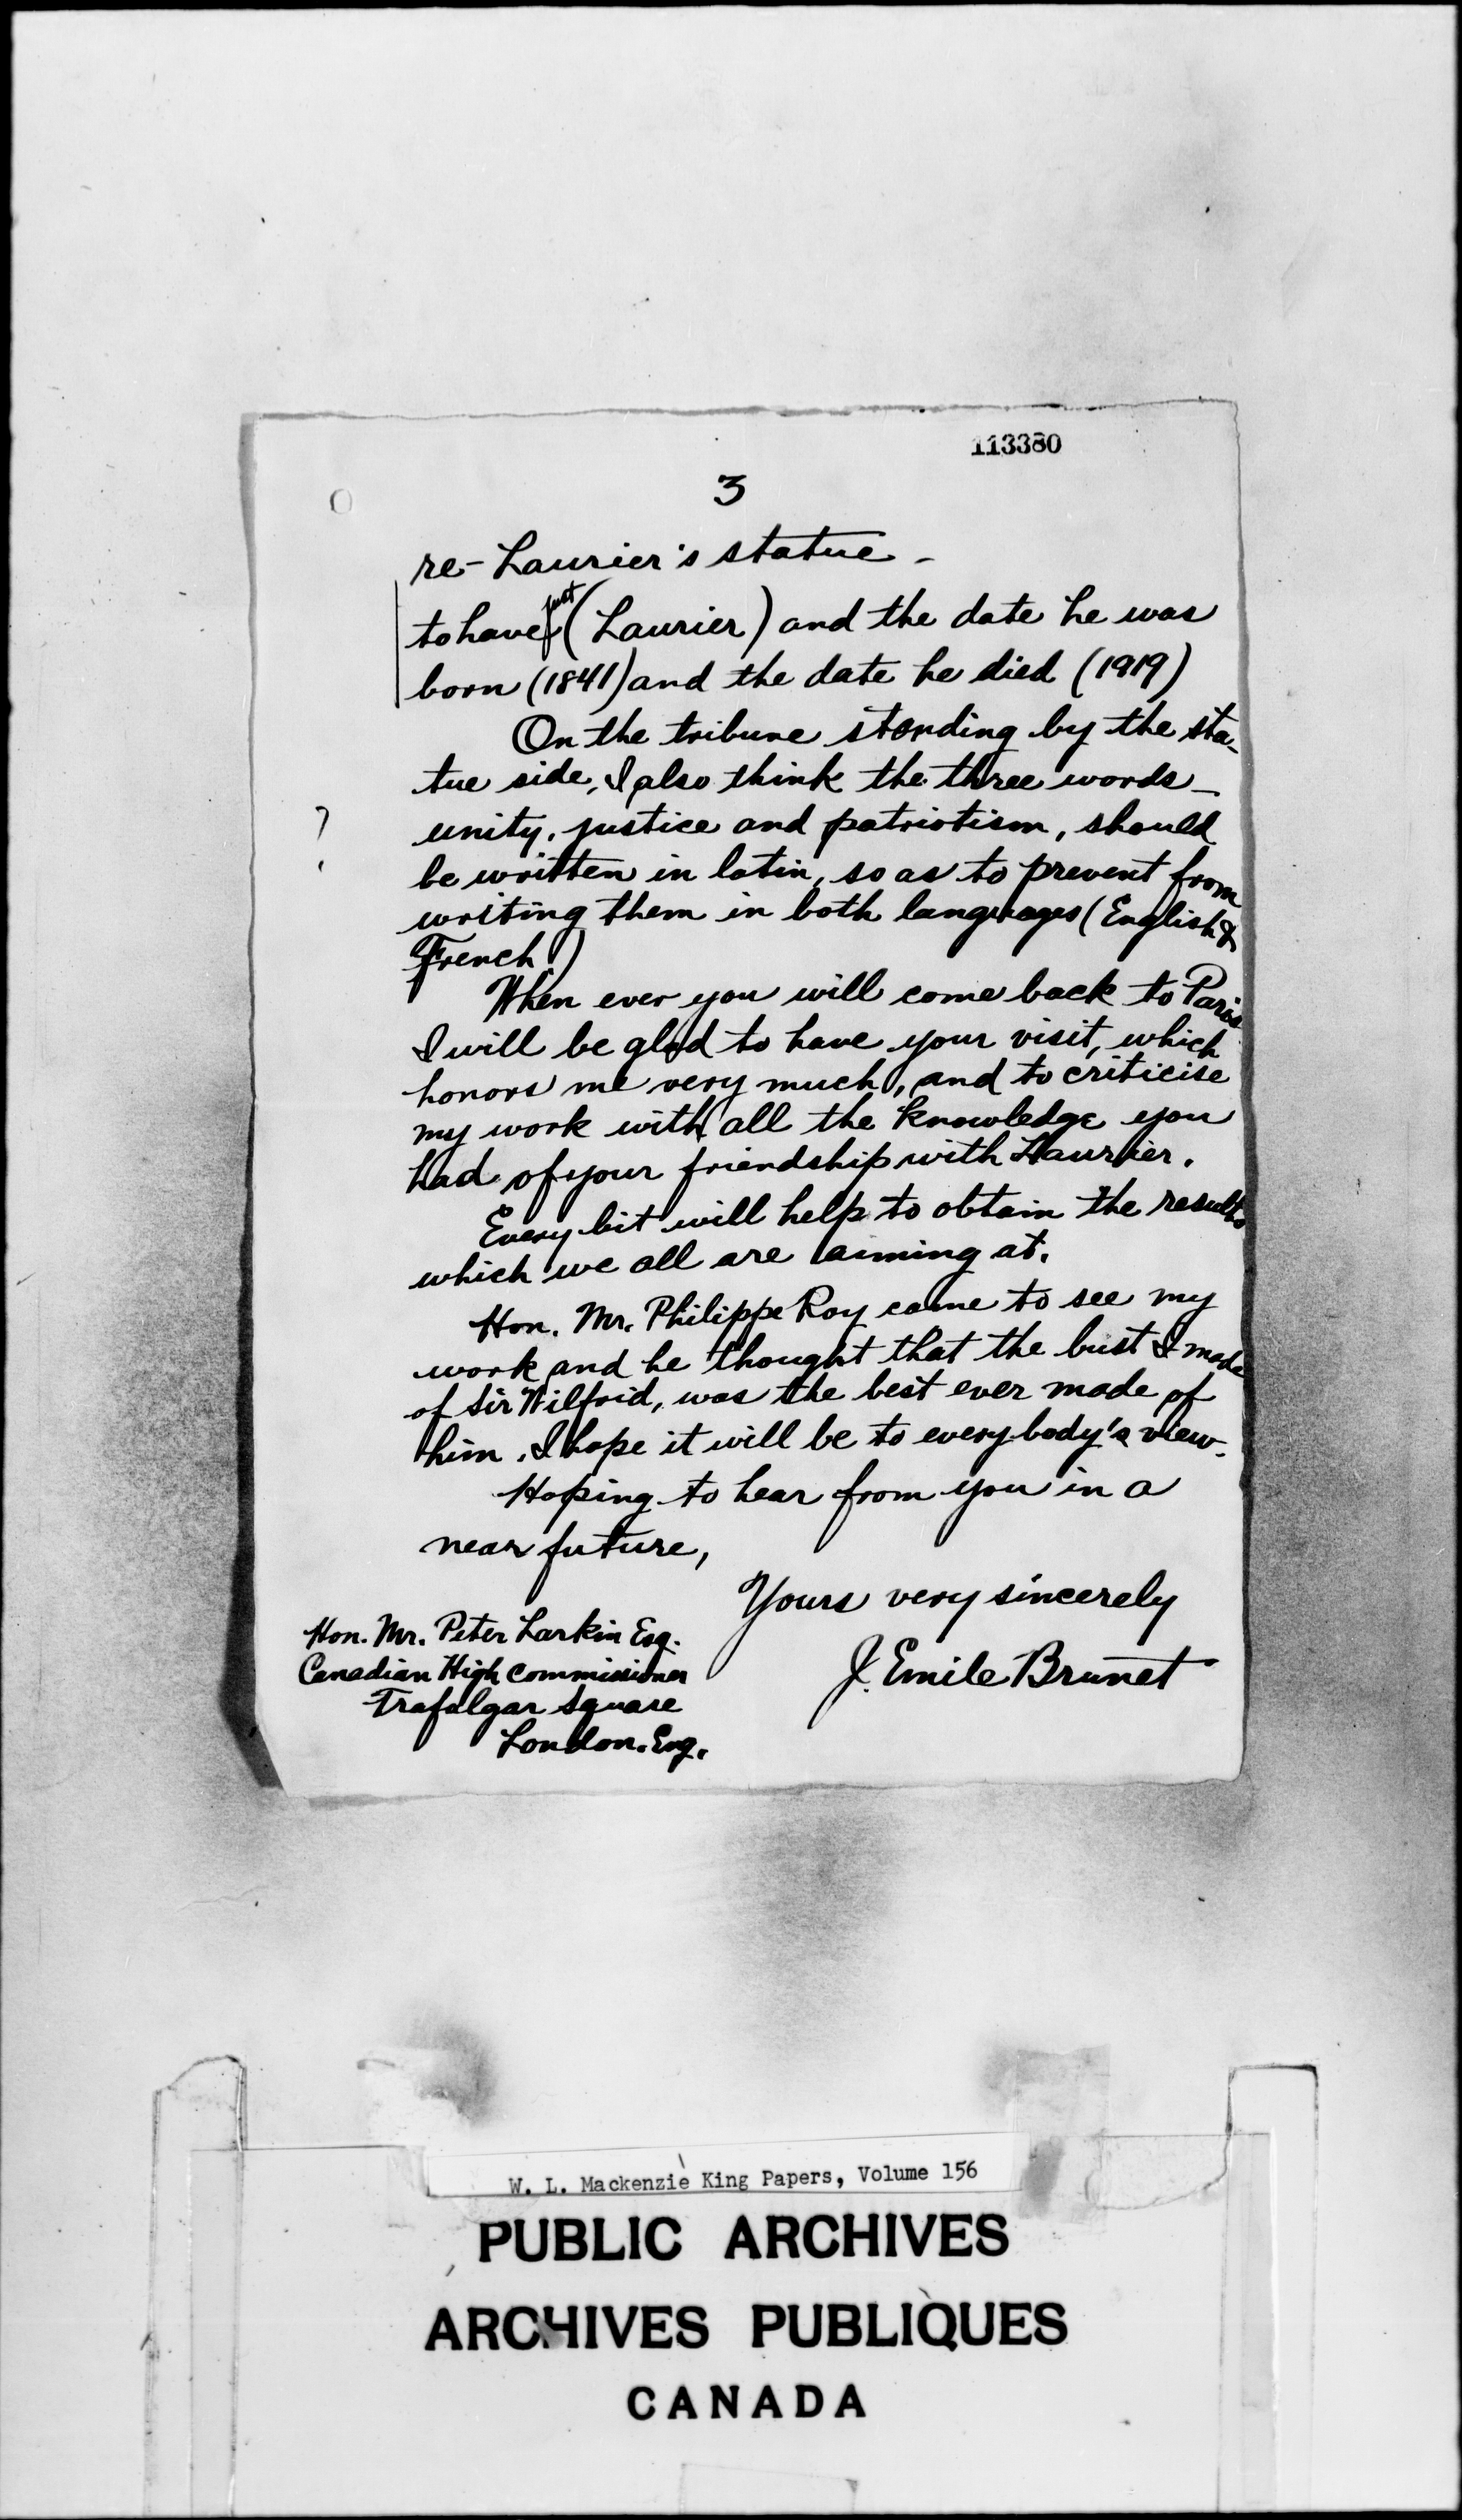 113380
3
re- Laurier's statue -
to have just (Laurier) and the date he was
born (1841) and the date he died (1919)
On the tribune standing by the sta-
tue side, I also think the three words -
? unity, justice and patriotism, should
be written in latin, so as to prevent from
writing them in both languages (English &
French)
When ever you will come back to Paris
I will be glad to have your visit, which
honors me very much, and to criticise
my work with all the knowledge you
had of your friendship with Laurier.
Every bit will help to obtain the results
which we all are aiming at.
Hon. Mr. Philippe Roy came to see my
work and he thought that the bust I made
of Sir Wilfrid, was the best ever made of
him. I hope it will be to every body's view.
Hoping to hear from you in a
near future,
Yours very sincerely
J. Emile Brunet
Hon. Mr. Peter Larkin Esq.
Canadian High Commissioner
Trafalgar Square
London. Eng.
W. L. Mackenzie King Papers, Volume 156
PUBLIC ARCHIVES
ARCHIVES PUBLIQUES
CANADA